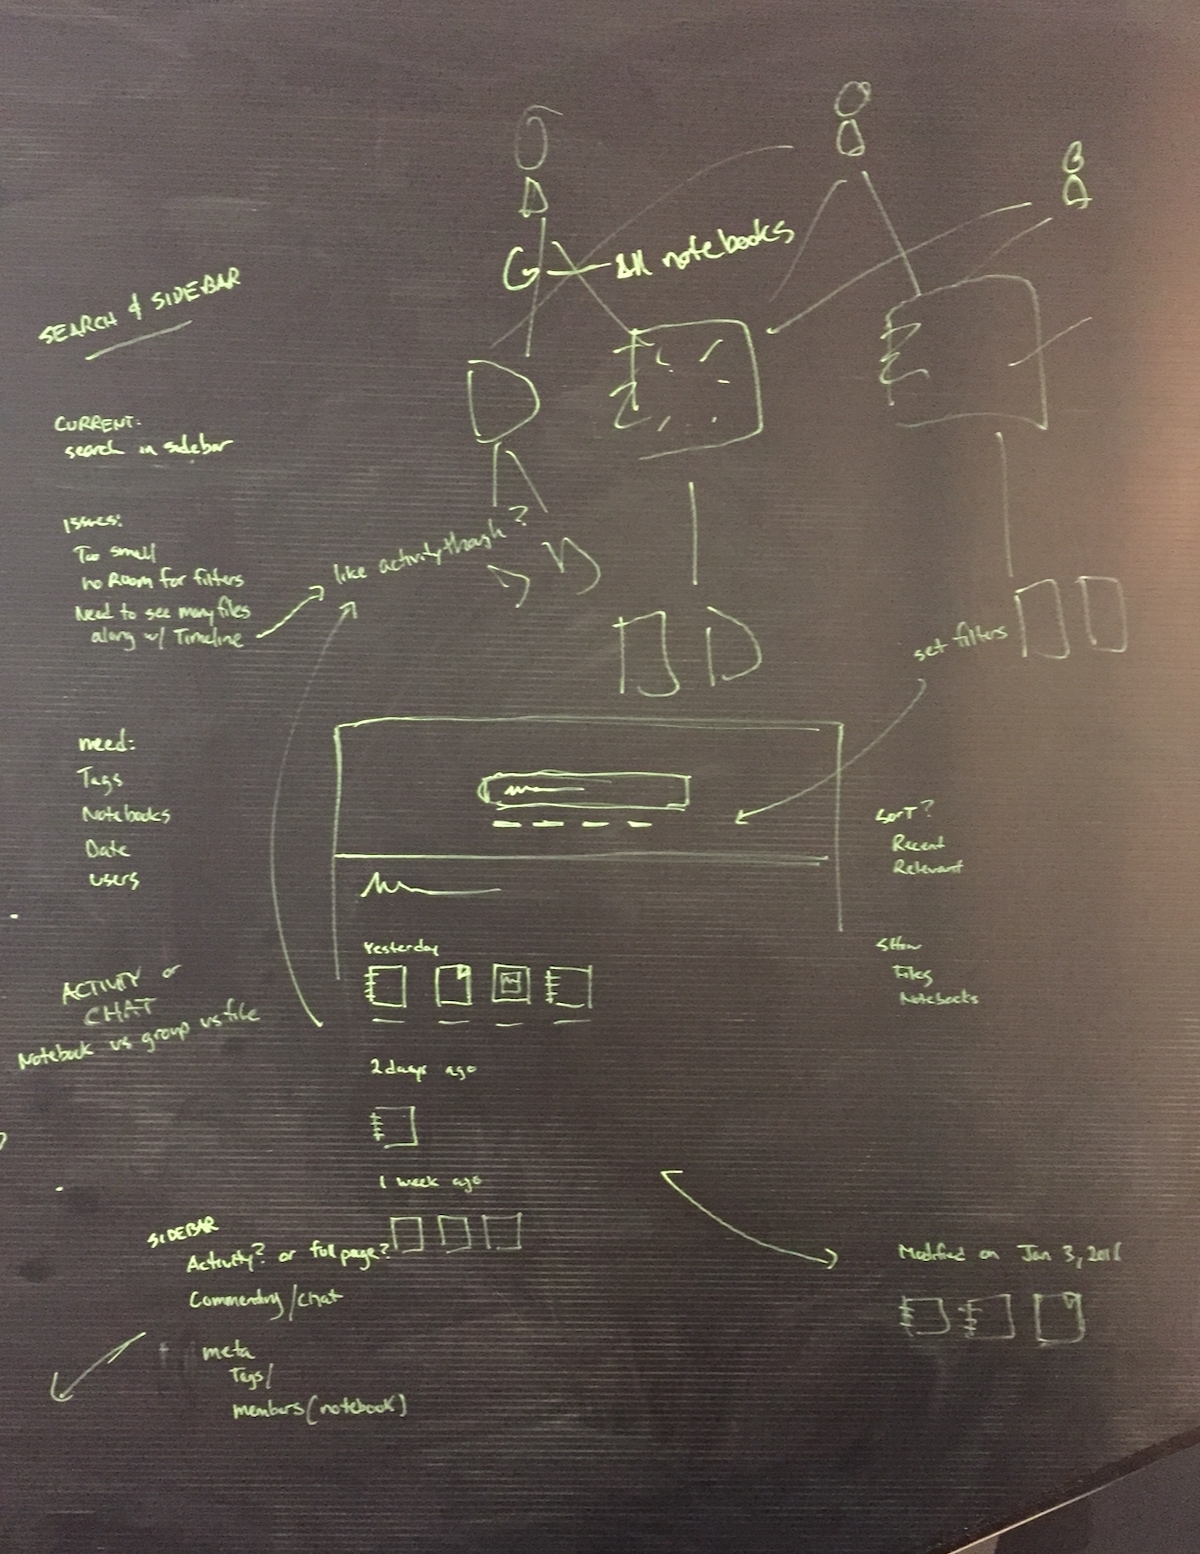 SEARCH & SIDEBAR
CURRENT:
search in sidebar
Issues:
Too small
no Room for filters
Need to see many files
along w/ Timeline
like activity though?
G — All notebooks
need:
Tags
Notebooks
Date
users
set filters
Sort?
Recent
Relevant
Show
Files
Notebooks
Yesterday
2 days ago
1 week ago
ACTIVITY or
CHAT
Notebook vs group vs file
SIDEBAR
Activity? or full page?
Commenting/chat
meta
Tags/
members (notebook)
Modified on Jan 3, 2016